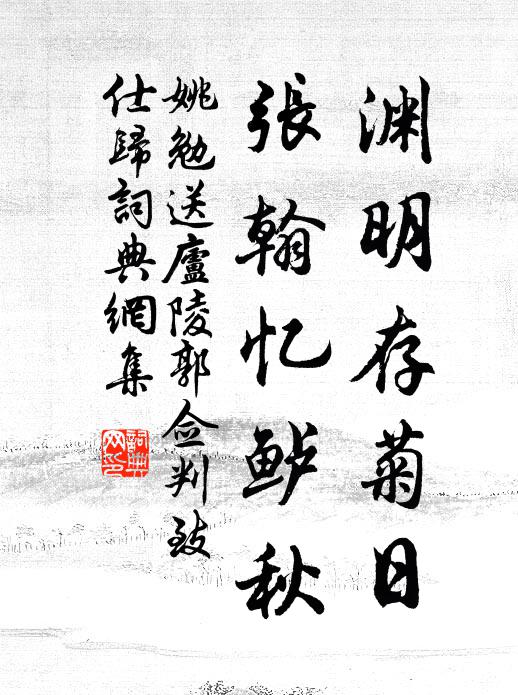 渊明存菊日
張翰忆鲈秋
姚勉送廬陵郭佥判致
仕歸詞典網集
詞典网印